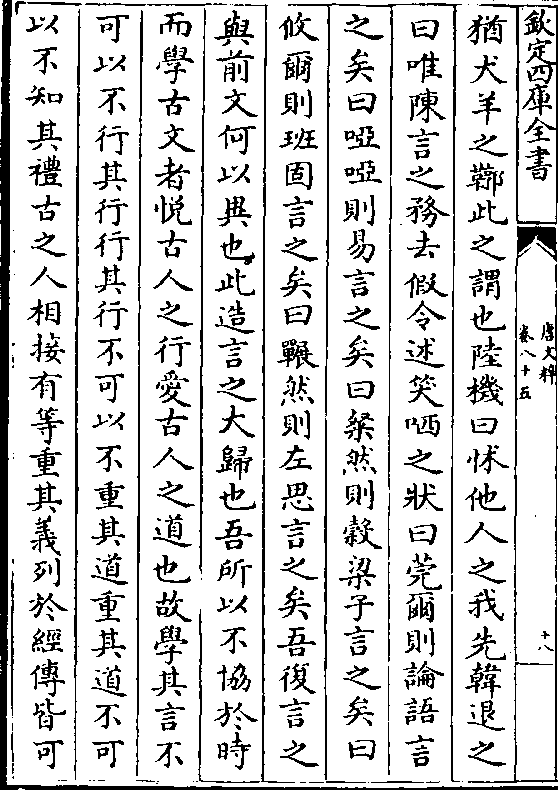 欽定四庫全書
唐文粹
卷八十五
十八
猶犬羊之鞹此之謂也陸機曰怵他人之我先韓退之
曰唯陳言之務去假令述笑哂之狀曰莞爾則論語言
之矣曰啞啞則易言之矣曰粲然則穀梁子言之矣曰
攸爾則班固言之矣曰囅然則左思言之矣吾復言之
與前文何以異也此造言之大歸也吾所以不協於時
而學古文者悅古人之行愛古人之道也故學其言不
可以不行其行行其行不可以不重其道重其道不可
以不知其禮古之人相接有等重其義列於經傳皆可